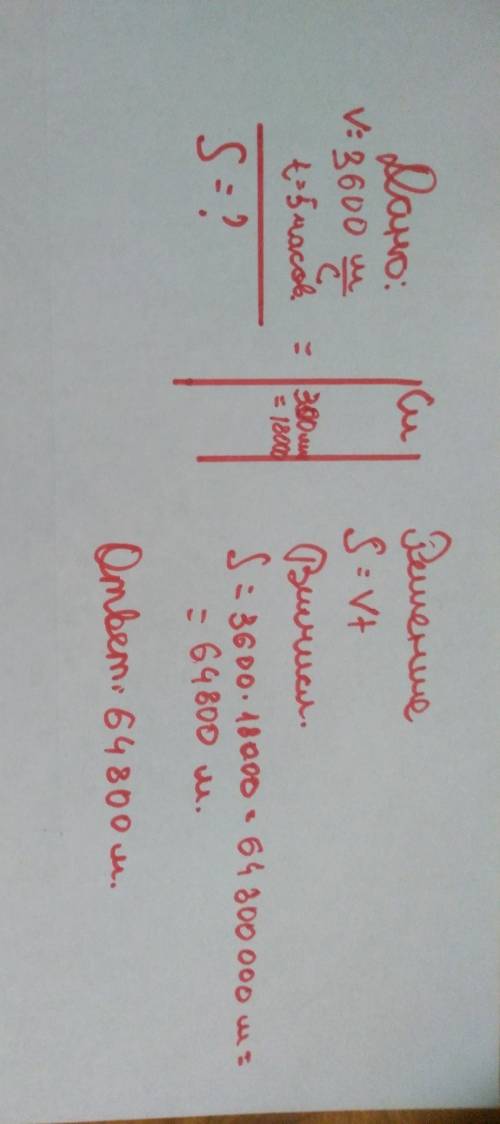 Дано:
V= 3600 м/с
t=5 часов =
S = ?
Си
300 мин
= 18000
Решение
S = Vt
Вычисл.
S = 3600 · 18000 = 64800000 м =
= 64800 м.
Ответ: 64800 м.